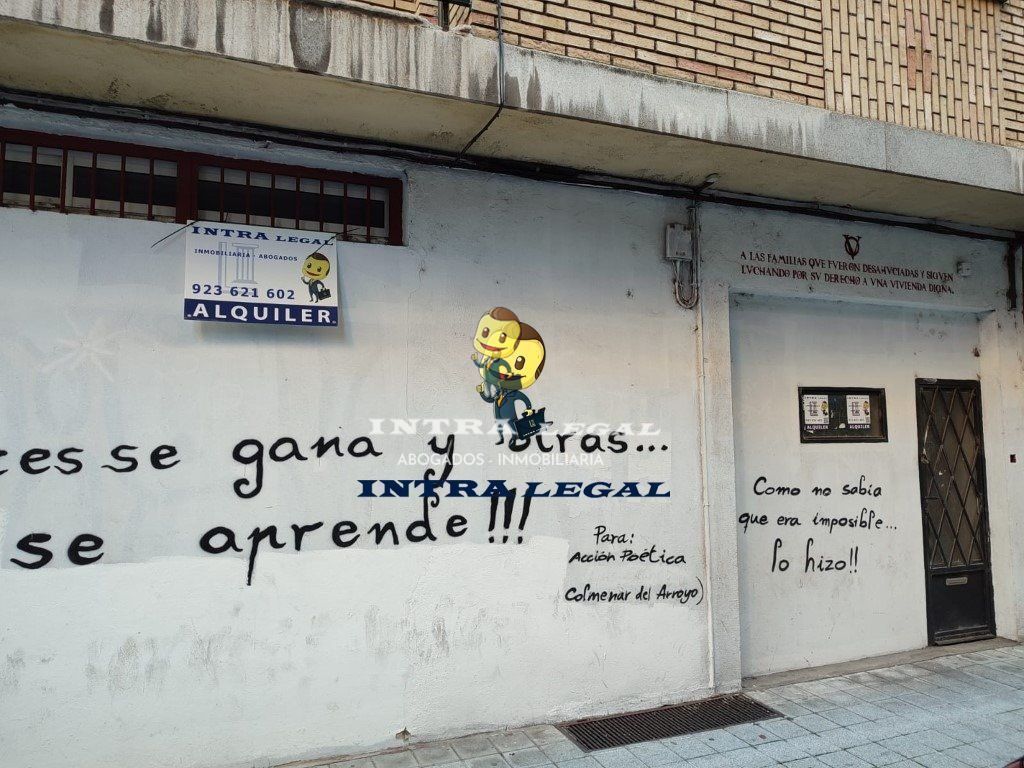 INTRA LEGAL
INMOBILIARIA - ABOGADOS
923 621 602
ALQUILER
A LAS FAMILIAS QVE FVERON DESAHVCIADAS Y SIGVEN
LVCHANDO POR SV DERECHO A VNA VIVIENDA DIGNA.
ALQUILER
ALQUILER
se gana y otras...
se aprende !!!
INTRA LEGAL
ABOGADOS - INMOBILIARIA
INTRA LEGAL
Para:
Acción Poética
Colmenar del Arroyo)
Como no sabia
que era imposible...
lo hizo!!